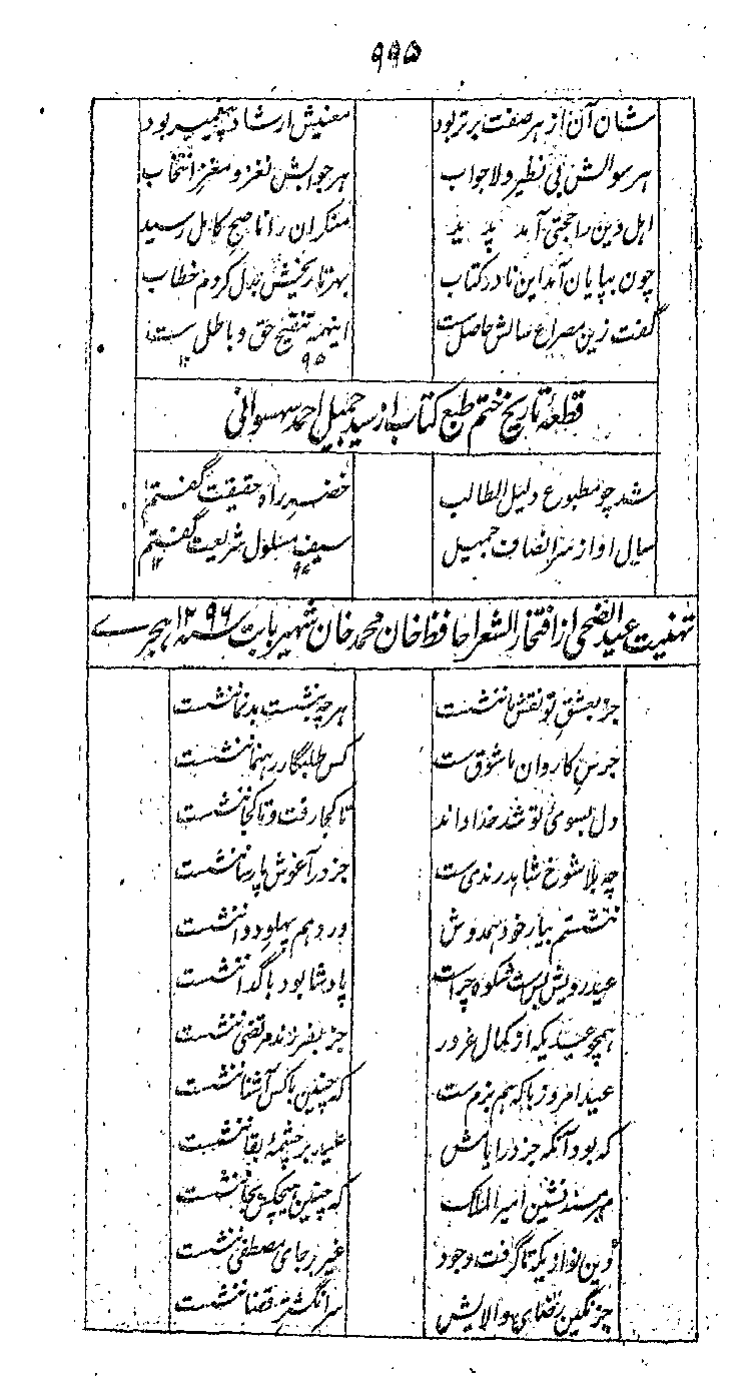 ۹۹۵
شان آن از هر صفت برتر بود معنیش ارشاد پیغمبر بود
هر سوالش بی نظیر و لاجواب هر جوابش نغز و مغز انتخاب
اهل دین را حجتی آمد پدید منکران را ناصح کامل رسید
چون بپایان آمد این نادر کتاب بهر تاریخش بدل کردم خطاب
گفت زین مصراع سالش حاصل ست اینهمه تنقیح حق و باطل ست
۱۲ ۹۵
قطعه تاریخ ختم طبع کتاب از سید جمیل احمد سهسوانی
شد چو مطبوع دلیل الطالب خضر راه حقیقت گفتم
سال او از سر انصاف جمیل سیف مسلول شریعت گفتم
۱۲ ۹۶
تهنیت عید الضحی از افتخار الشعرا حافظ خان محمد خان شهیر بابت سنه ۱۲۹۶ هجری
جز بعشق تو نقش ما ننشست هر چه بنشست بدنما ننشست
جرس کاروان ما شوق ست کس طلبگار رهنما ننشست
دل بسوی تو شد خدا داند تا کجا رفت و تا کجا ننشست
چه بلا شوخ شاهد رندی ست جز در آغوش پارسا ننشست
ننشستم بیار خود همدوش درد هم پهلوی دوا ننشست
عید درویش بس ست شکوه چراست پادشا بود با گدا ننشست
همچو عیدیکه از کمال غرور جز بفرزند مرتضی ننشست
عید امروز با که هم بزم ست که چنین با کس آشنا ننشست
که بود آنکه جز در ایامش عید بر چشمهٔ بقا ننشست
مسند نشین امیر الملک که چنین هیچکس بجا ننشست
دین نوازیکه تا گرفت وجود غیر بر جای مصطفی ننشست
جز نگین رضای والایش بر انگشتر قضا ننشست